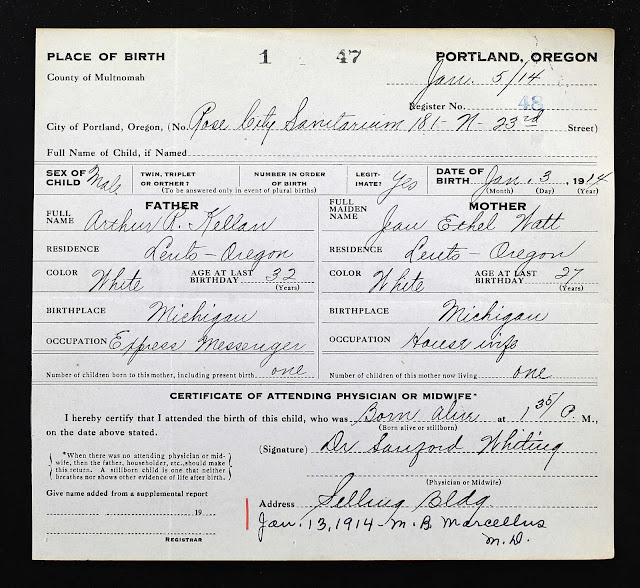 PLACE OF BIRTH 1 47 PORTLAND, OREGON
County of Multnomah Jan. 5/14
Register No. 48
City of Portland, Oregon, (No. Rose City Sanitarium 181-N-23rd Street)
Full Name of Child, if Named
SEX OF CHILD Male TWIN, TRIPLET OR OTHER? NUMBER IN ORDER OF BIRTH (To be answered only in event of plural births) LEGITIMATE? Yes DATE OF BIRTH Jan. 3, 1914 (Month) (Day) (Year)
FATHER MOTHER
FULL NAME Arthur R. Kellan FULL MAIDEN NAME Jean Ethel Watt
RESIDENCE Lents - Oregon RESIDENCE Lents - Oregon
COLOR White AGE AT LAST BIRTHDAY 32 (Years) COLOR White AGE AT LAST BIRTHDAY 27 (Years)
BIRTHPLACE Michigan BIRTHPLACE Michigan
OCCUPATION Express Messenger OCCUPATION House wife
Number of children born to this mother, including present birth one Number of children of this mother now living one
CERTIFICATE OF ATTENDING PHYSICIAN OR MIDWIFE*
I hereby certify that I attended the birth of this child, who was Born alive at 1 35/ P. M.,
(Born alive or stillborn)
on the date above stated.
(Signature) Dr Sanford Whiting
(Physician or Midwife)
*When there was no attending physician or mid-
wife, then the father, householder, etc., should make
this return. A stillborn child is one that neither
breathes nor shows other evidence of life after birth.
Give name added from a supplemental report
19
REGISTRAR
Address Selling Bldg
Jan. 13, 1914 - M. B. Marcellus
M.D.